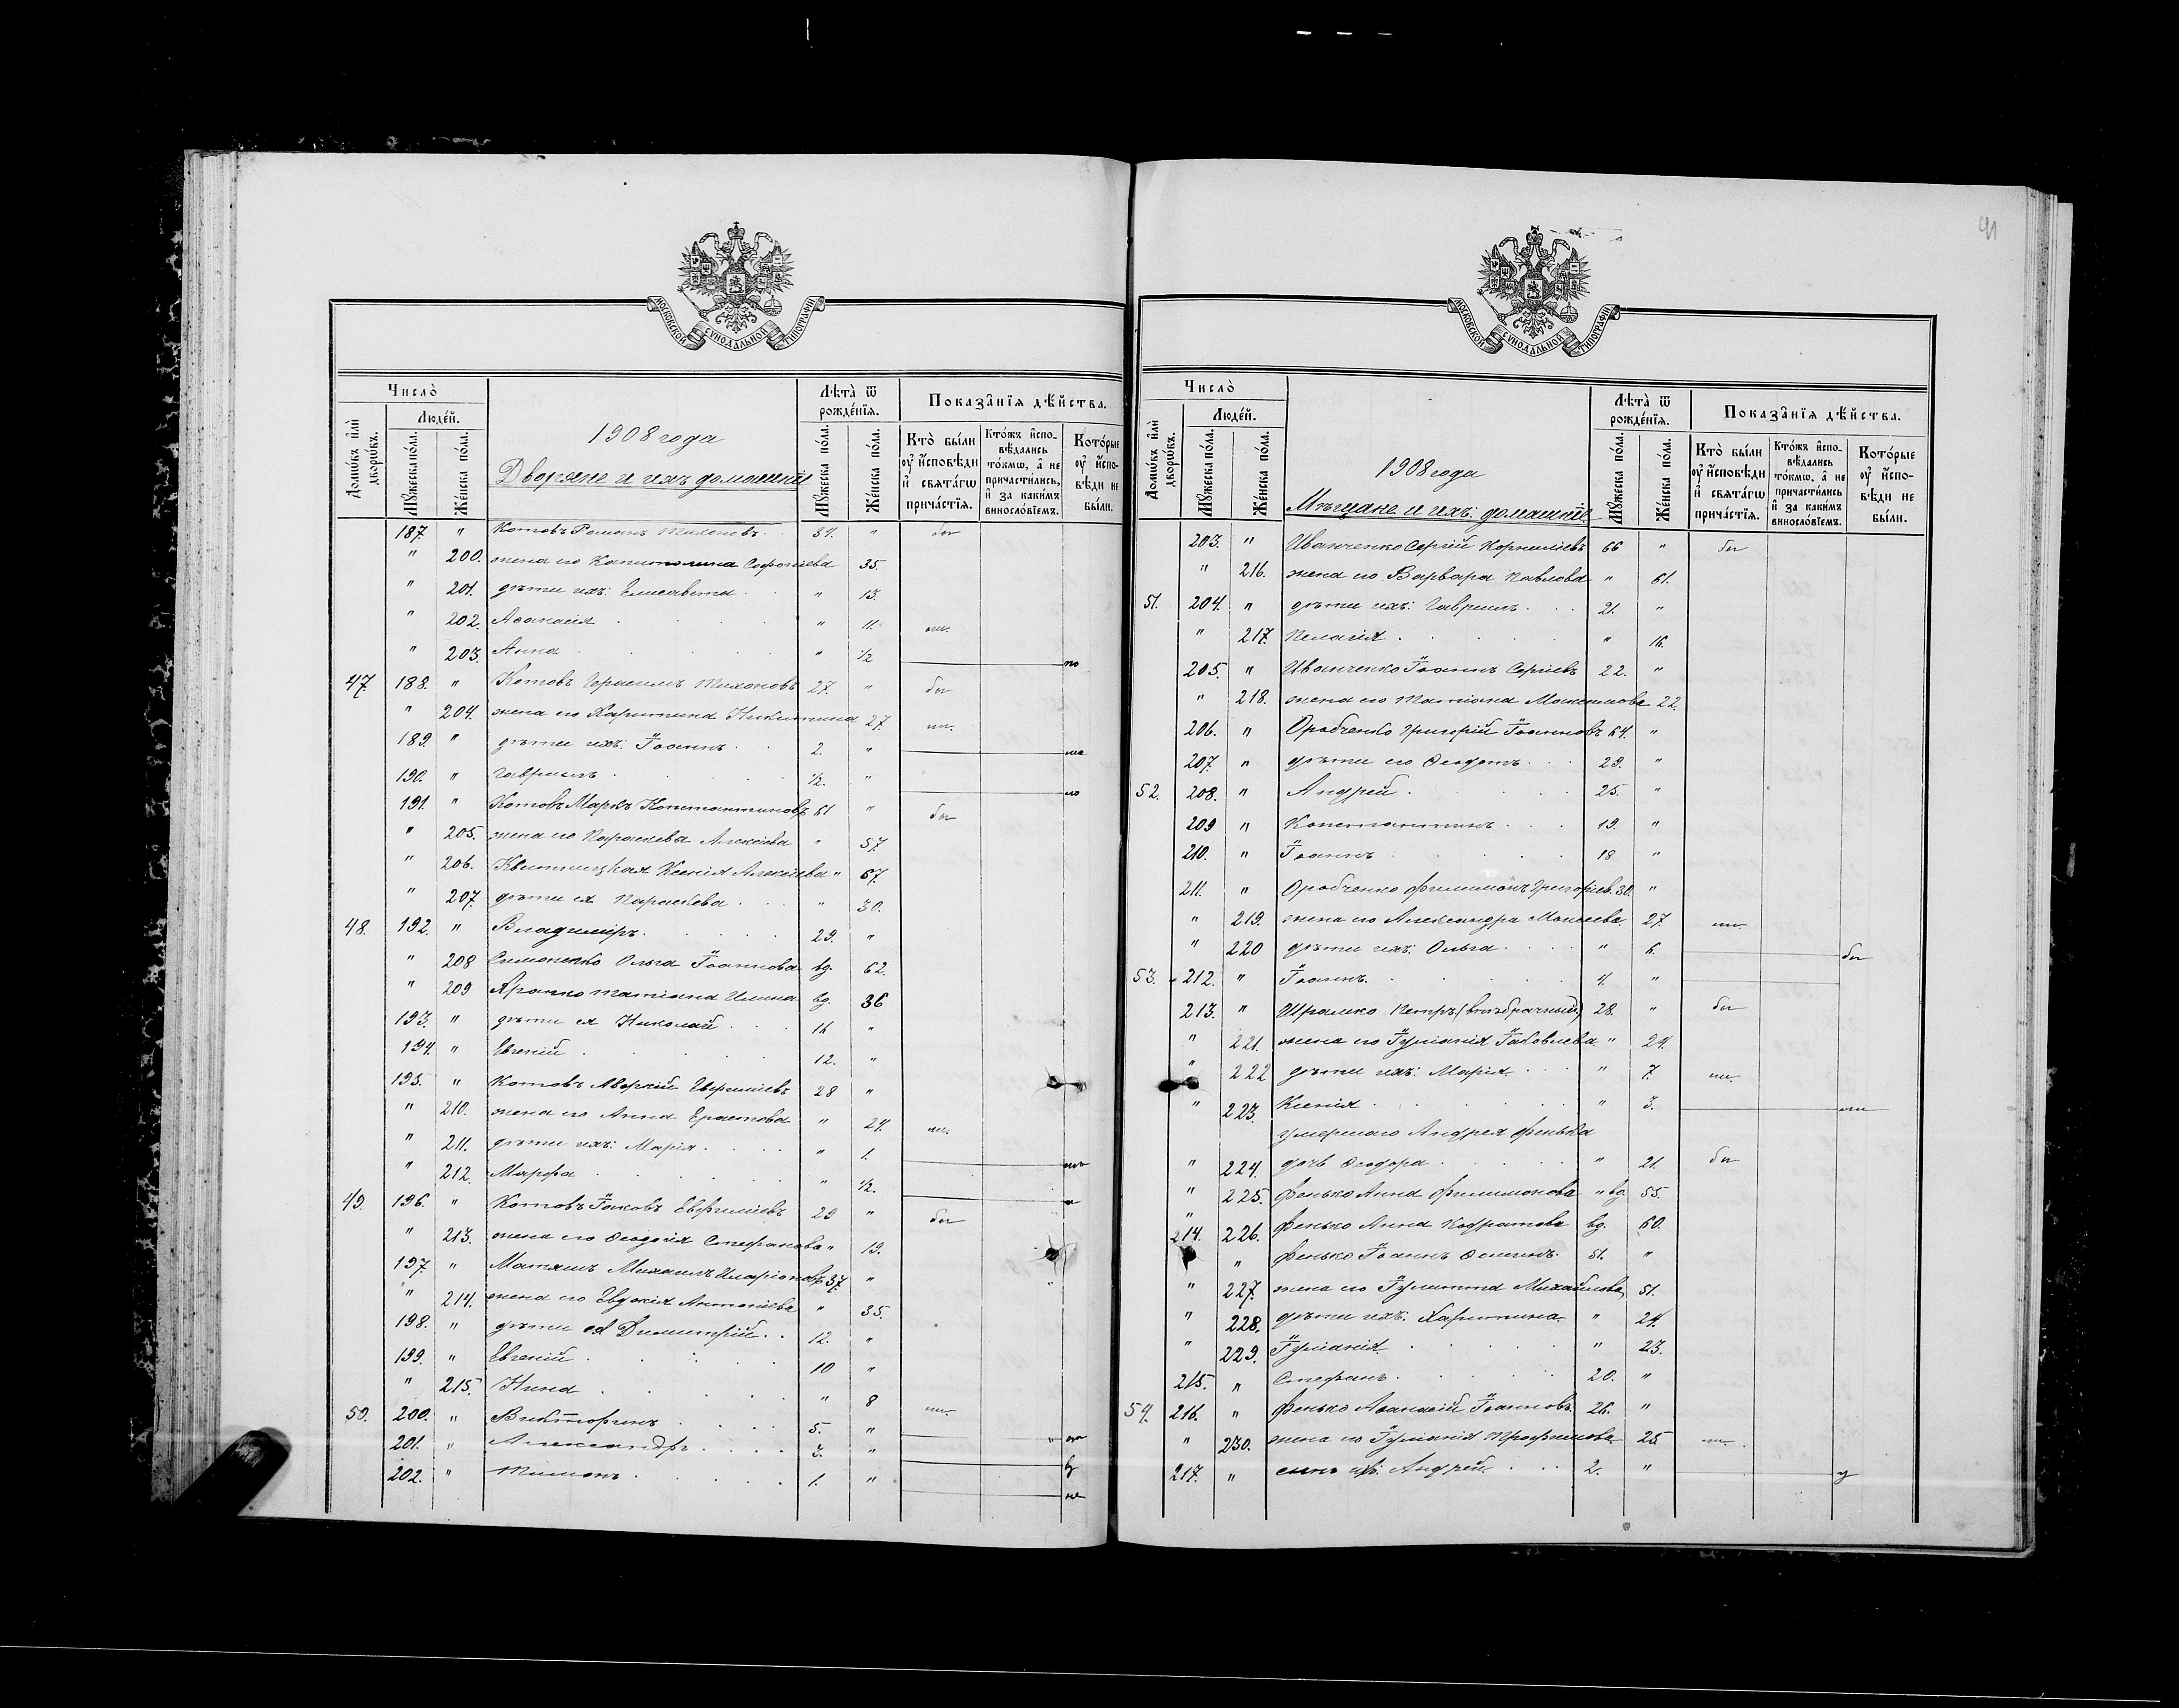 41
МОСКОВСКОЙ СѴНОДАЛЬНОЙ ТИПОГРАФІИ
Число̀
Домѡ́въ и҆лѝ дворѡ́въ.
Люде́й.
Мꙋ́жеска по́ла.
Же́нска по́ла.
1908 года
Дворяне и ихъ домашніе
Лѣта̀ ѿ рожде́нїѧ.
Мꙋ́жеска по́ла.
Же́нска по́ла.
Показа̑нїѧ дѣ́йства.
Кто̀ бы́ли оу҆ и҆́сповѣди и҆ свѧта́гѡ прича́стїѧ.
Кто́жъ и҆спо-вѣ́дались то́кмѡ, а҆ не причасти́лись, и҆ за каки́мъ винослóвїемъ.
Кото́рые оу҆ и҆́спо-вѣди не бы́ли.
187. " Котовъ Романъ Тихоновъ 34. " бы
" 200. жена его Капитолина Софроніева 35.
" 201. дѣти ихъ: Елисавета " 13.
" 202. Аѳанасія " 11. ли.
" 203. Анна " ½ по
47. 188. " Котовъ Герасимъ Тихоновъ 27. " бы
" 204. жена его Харитина Никитина 27. ли.
189. " дѣти ихъ: Іоаннъ 2. "
190. " Гавріилъ ½. "
191. " Котовъ Маркъ Константиновъ 61 " бы
" 205. жена его Параскева Алексіева " 57.
" 206. Квитницкая Ксенія Алексіева " 67.
" 207. дѣти ея Параскева " 30.
48. 192. " Владиміръ 29. "
" 208 Симоненко Ольга Іоаннова вд. 62.
" 209 Храпко Татіана Ильина вд. 36
193. " дѣти ея Николай 16 "
194. " Евгеній 12. "
195. " Котовъ Аверкій Евргиліевъ 28 "
" 210. жена его Анна Ерастова " 24. ли.
" 211. дѣти ихъ: Марія " 1.
" 212. Марфа " ½.
49. 196. " Котовъ Іаковъ Евергиліевъ 29 " бы
" 213. жена его Ѳеодосія Стефанова " 19.
197. " Маташъ Михаилъ Иларіоновъ 37. "
" 214. жена его Евдокія Антоніева " 35.
198. " дѣти ея Димитрій 12. "
199. " Евгеній 10 "
" 215. Нина " 8 ли.
50. 200. " Викторинъ 5. "
201. " Александръ 3. "
202. " Тимонъ 1. " не
МОСКОВСКОЙ СѴНОДАЛЬНОЙ ТИПОГРАФІИ
Число̀
Домѡ́въ и҆лѝ дворѡ́въ.
Люде́й.
Мꙋ́жеска по́ла.
Же́нска по́ла.
1908 года
Мѣщане и ихъ: домашніе.
Лѣта̀ ѿ рожде́нїѧ.
Мꙋ́жеска по́ла.
Же́нска по́ла.
Показа̑нїѧ дѣ́йства.
Кто̀ бы́ли оу҆ и҆́сповѣди и҆ свѧта́гѡ прича́стїѧ.
Кто́жъ и҆спо-вѣ́дались то́кмѡ, а҆ не причасти́лись и҆ за каки́мъ винослóвїемъ.
Кото́рые оу҆ и҆́спо-вѣди не бы́ли.
203. " Иванченко Сергій Корниліевъ 66 " бы
" 216. жена его Варвара Павлова " 61.
51. 204. " дѣти ихъ: Гавріилъ 21. "
" 217. Пелагія " 16.
205. " Иванченко Іоаннъ Сергіевъ 22. "
" 218. жена его Татіана Максимова 22.
206. " Оробченко Григорій Іоанновъ 64. "
207. " дѣти его Ѳеодотъ 29. "
52. 208. " Андрей 25. "
209 " Константинъ 19. "
210. " Іоаннъ 18 "
211. " Оробченко Филимонъ Григоріев. 30. "
" 219. жена его Александра Моисеева 27. ли.
" 220 дѣти ихъ: Ольга " 6. бы
53. 212. " Іоаннъ. 4. "
213. " Ирашко Петръ (внѣбрачный) 28. " бы
" 221. жена его Іуліанія Іаковлева " 24.
" 222 дѣти ихъ: Марія " 7. ли.
" 223. Ксенія " 3. ли
умершаго Андрея Фенька
" 224. дочь Ѳеодора " 21. бы
" 225. Фенько Анна Филимонова " вд. 55.
" 226. Фенько Анна Кодратова вд. 60.
214. " Фенько Іоаннъ Осипов. 51. "
" 227. жена его Іулитта Михайлова 51.
" 228. дѣти ихъ: Харитина " 24.
" 229. Іуліанія " 23.
215. " Стефанъ 20. "
54. 216. " Фенько Аѳанасій Іоанновъ 26. "
" 230. жена его Іуліанія Трофимова 25 ли.
217. " сынъ их: Андрей 2. "